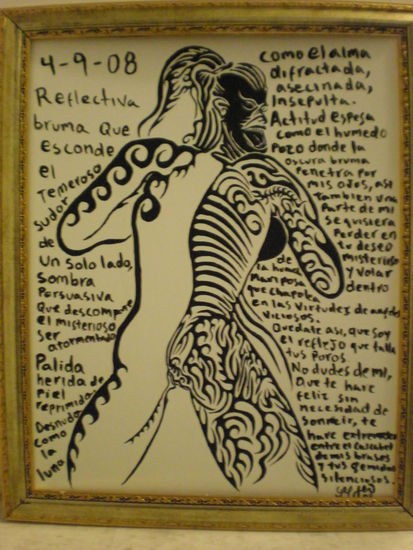 4-9-08
Reflectiva
bruma que
esconde
el
Temeroso
sudor
de
un solo lado,
Sombra
Persuasiva
Que descompone
el misterioso
ser
atormentado
Palida
herida de
piel
reprimida
Desnuda
como
la
luna
como el alma
difractada,
asecinada,
Insepulta.
Actitud espesa
como el humedo
Pozo donde la
oscura bruma
Penetra por
mis ojos, asi
tambien una
parte de mi
se quisiera
Perder en
tu deseo
misterioso
y volar
dentro
de
la
mariposa
que chapotea
en las virtudes de
viciosos.
Quedate asi, que soy
el reflejo que talla
tus poros
No dudes de mi,
Que te hare
feliz sin
necesidad de
sonreir, te
hare estremecer
entre el cascabel
de mis brasas
y tus gemidos
silenciosos.